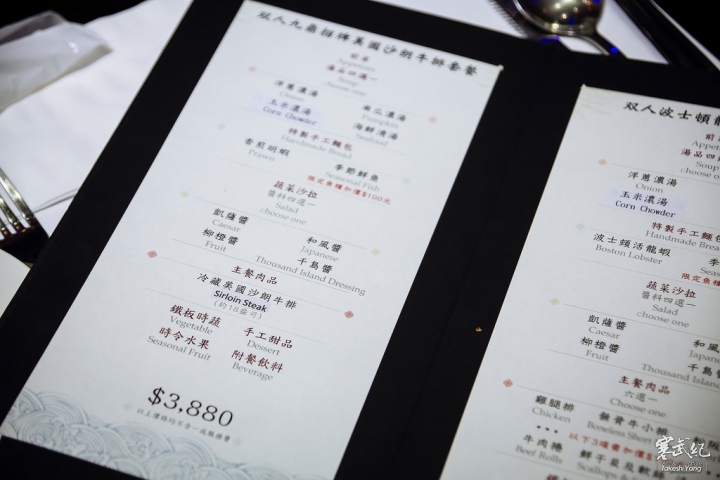 双人九鼎招牌美國沙朗牛排套餐
前菜
Appetizers
湯品四選一
Soup
choose one
洋蔥濃湯
Onion
南瓜濃湯
Pumpkin
玉米濃湯
Corn Chowder
海鮮清湯
Seafood
特製手工麵包
Handmade Bread
香煎胡蝦
Prawn
季節鮮魚
Seasonal Fish
限定魚種加價$100元
蔬菜沙拉
醬料四選一
Salad
choose one
凱薩醬
Caesar
和風醬
Japanese
柳橙醬
Fruit
千島醬
Thousand Island Dressing
主餐肉品
冷藏美國沙朗牛排
Sirloin Steak
(約18盎司)
鐵板時蔬
Vegetable
手工甜品
Dessert
時令水果
Seasonal Fruit
附餐飲料
Beverage
$3,880
以上價格均不含一成服務費
双人波士頓龍
前
Appet
湯品四
Soup
choose
洋蔥濃湯
Onion
玉米濃湯
Corn Chowder
特製手工麵包
Handmade Brea
波士頓活龍蝦
Boston Lobster
季
Sea
限定魚種
蔬菜沙拉
醬料四選一
Salad
choose one
凱薩醬
Caesar
和風
Japan
柳橙醬
Fruit
千島
Thousand Islan
主餐肉品
六選一
Choose one
雞腿排
Chicken
無骨牛小排
Boneless Short
以下3項需加價
牛肉捲
Beef Rolls
鮮干貝及軟絲
Scallops
寒武紀
Takeshi Yang